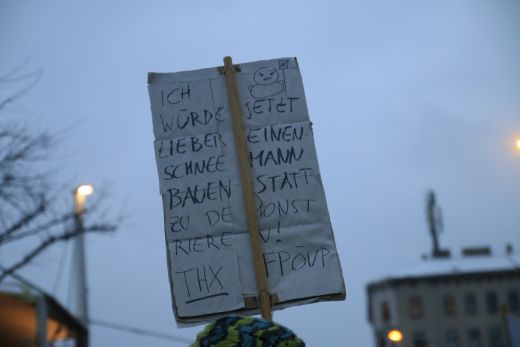 ICH
WÜRDE JETZT
LIEBER EINEN
SCHNEE MANN
BAUEN STATT
ZU DE ONST
RIERE N!
THX FPÖVP